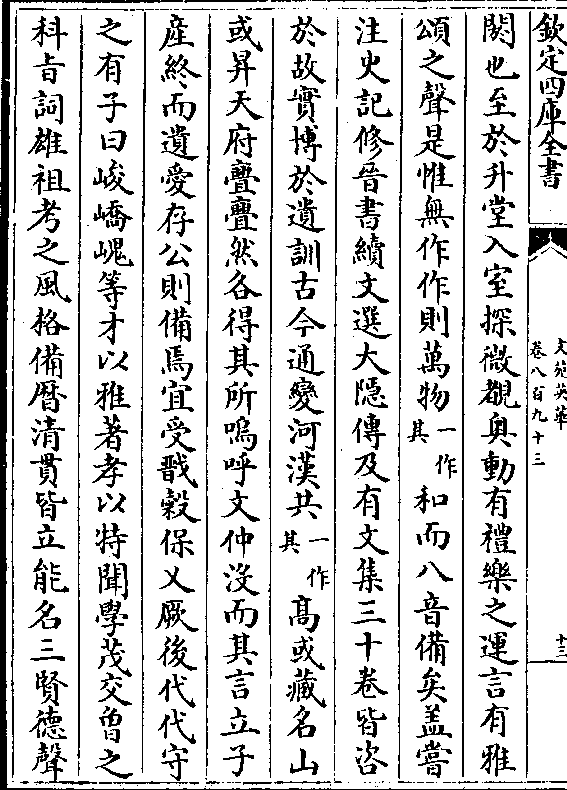 欽定四庫全書
文苑英華
卷八百九十三
十三
闕也至於升堂入室探微覩奥動有禮樂之運言有雅
頌之聲是惟無作作則萬物一作其和而八音備矣蓋嘗
注史記修晉書續文選大隠傳及有文集三十卷皆咨
於故實博於遺訓古今通變河漢共一作其高或藏名山
或昇天府亹亹然各得其所嗚呼文仲沒而其言立子
産終而遺愛存公則備焉宜受戩穀保乂厥後代代守
之有子曰峻嶠嵬等才以雅著孝以特聞學茂交曽之
科㫖詞雄祖考之風格備厯清貫皆立能名三賢德聲